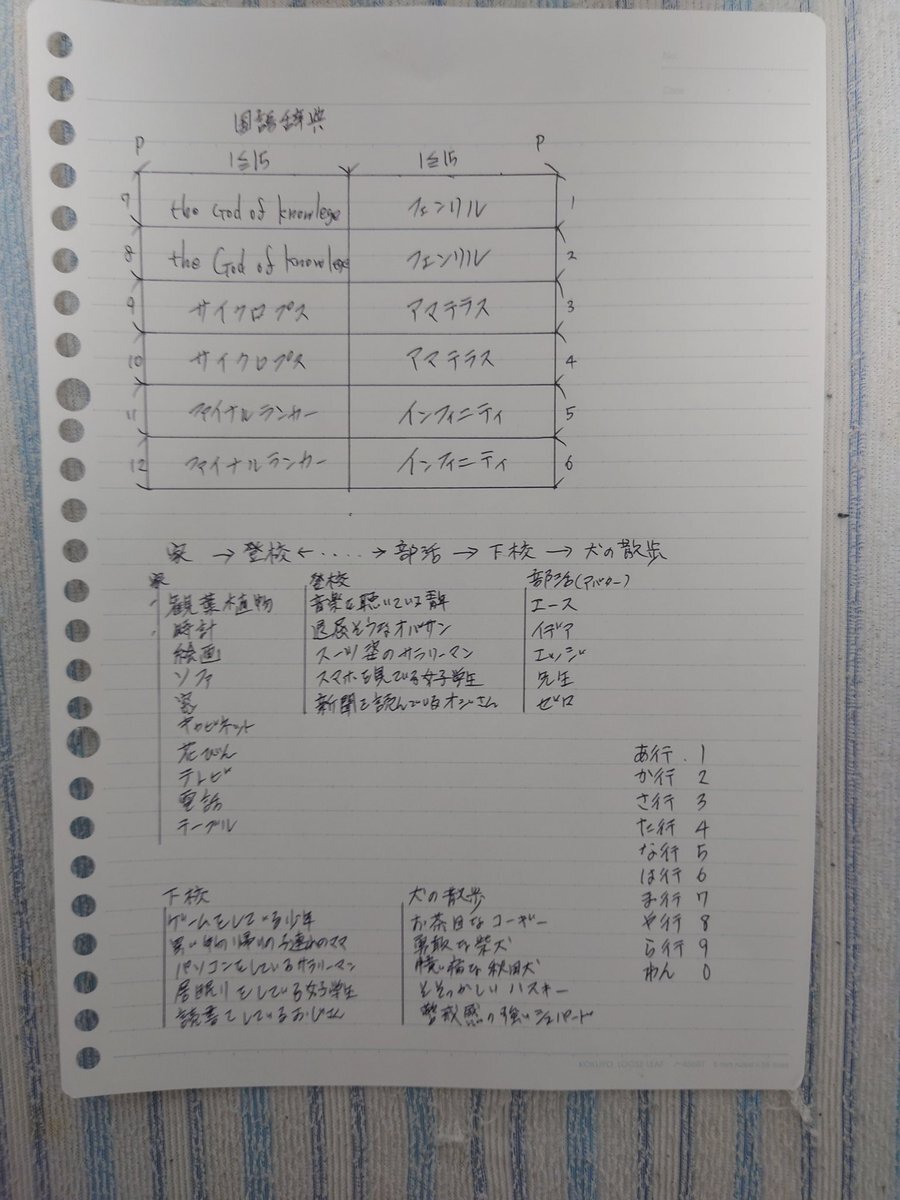 No.
Date
国語辞典
P 1≦15 1≦15 P
7 the God of knowlege フェンリル 1
8 the God of knowlege フェンリル 2
9 サイクロプス アマテラス 3
10 サイクロプス アマテラス 4
11 ファイナルランカー インフィニティ 5
12 ファイナルランカー インフィニティ 6
家 → 登校 ← ‥‥ → 部活 → 下校 → 犬の散歩
家
観葉植物
時計
絵画
ソファ
窓
キャビネット
花びん
テレビ
電話
テーブル
登校
音楽を聴いている青年
退屈そうなオバサン
スーツ姿のサラリーマン
スマホを見ている女子学生
新聞を読んでいるオジさん
部活(アバター)
エース
イデア
エッジ
先生
ゼロ
あ行 1
か行 2
さ行 3
た行 4
な行 5
は行 6
ま行 7
や行 8
ら行 9
わん 0
下校
ゲームをしている少年
買い物帰りの子連れのママ
パソコンをしているサラリーマン
居眠りをしている女子学生
読書をしているおじさん
犬の散歩
お茶目なコーギー
勇敢な柴犬
賢い秋田犬
そそっかしいハスキー
警戒感の強いシェパード
KOKUYO LOOSE-LEAF